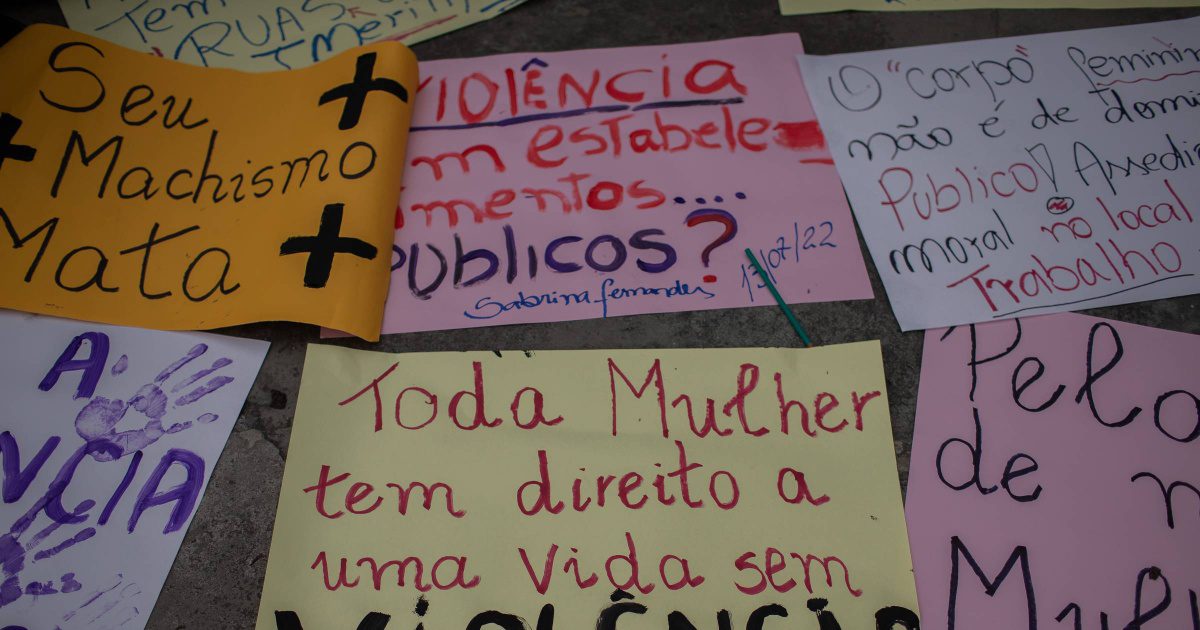 Tem
RUAS
Seu
Machismo
Mata
VIOLÊNCIA
em estabele
mentos....
Públicos?
Sabrina fernandes 13/07/22
O "corpo"
não é de
Público! Assedi
moral no local
Trabalho
A
NCIA
Toda Mulher
tem direito a
uma vida sem
VIOLÊNCIA
Pelo
de
Mulh